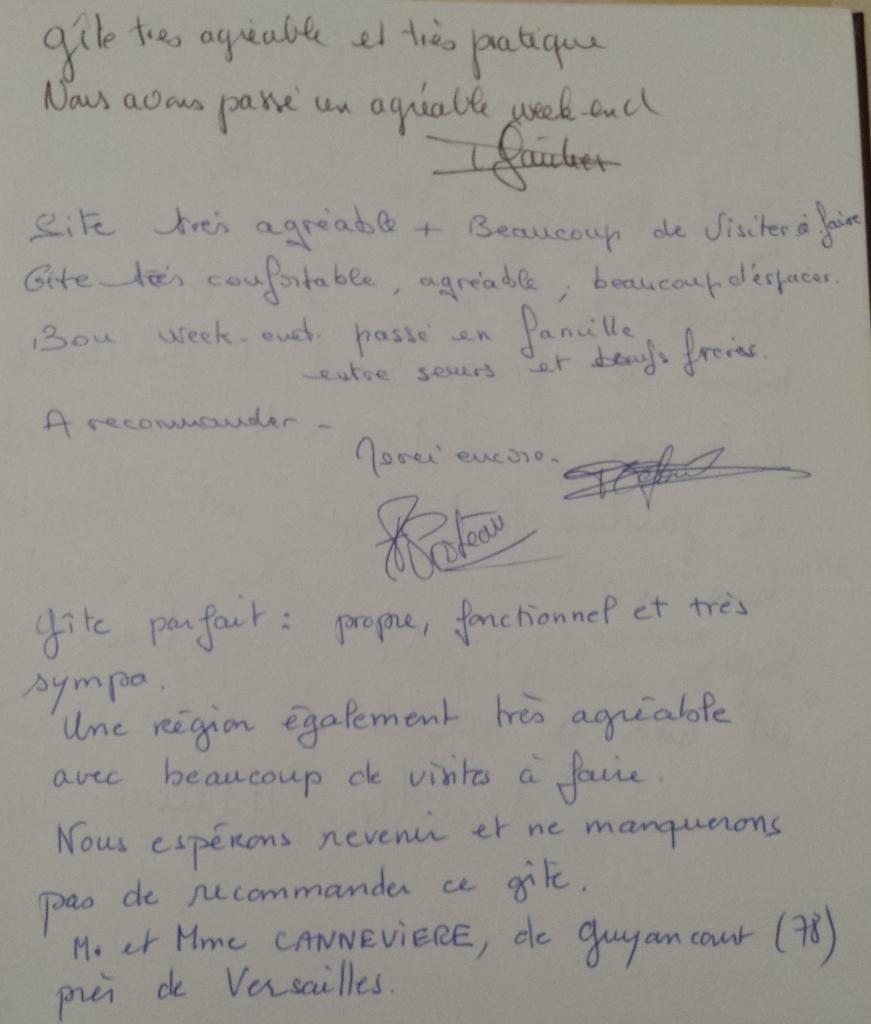 gîte très agréable et très pratique
Nous avons passé un agréable week-end
Site très agréable + Beaucoup de Visiter à faire
Gite très confortable, agréable, beaucoup d'espaces.
Bon week-end. passé en famille
entre sœurs et beaufs frères.
A recommander -
Merci encore.
Gîte parfait : propre, fonctionnel et très
sympa.
Une région également très agréable
avec beaucoup de visites à faire.
Nous espérons revenir et ne manquerons
pas de recommander ce gîte.
M. et Mme CANNEVIERE, de Guyancourt (78)
près de Versailles.